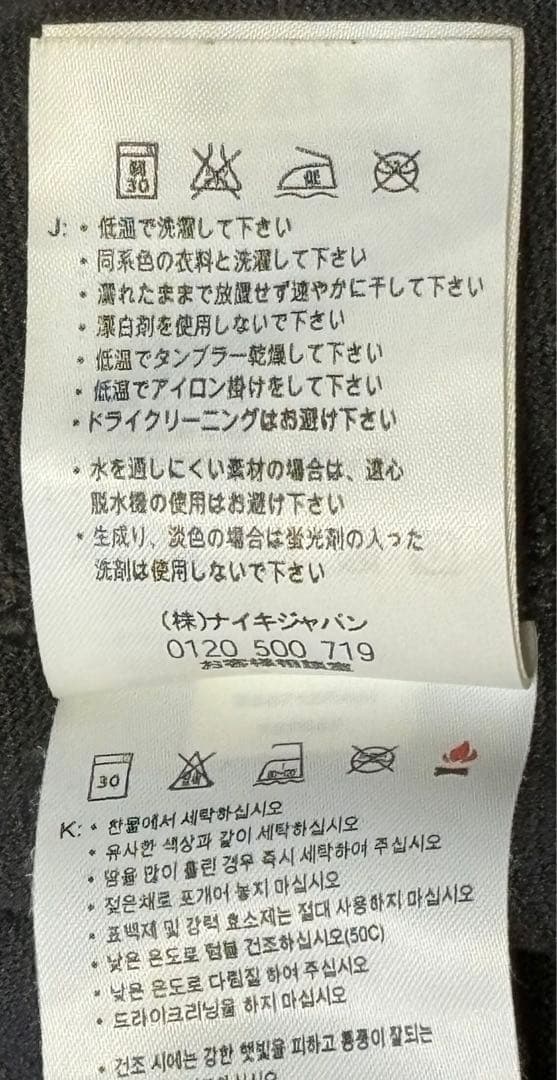 弱
30
エンソサラシ
低
ドライ
J: • 低温で洗濯して下さい
• 同系色の衣料と洗濯して下さい
• 濡れたままで放置せず速やかに干して下さい
• 漂白剤を使用しないで下さい
• 低温でタンブラー乾燥して下さい
• 低温でアイロン掛けをして下さい
• ドライクリーニングはお避け下さい
• 水を通しにくい素材の場合は、遠心
脱水機の使用はお避け下さい
• 生成り、淡色の場合は蛍光剤の入った
洗剤は使用しないで下さい
(株)ナイキジャパン
0120 500 719
お客様相談室
30
K: • 찬물에서 세탁하십시오
• 유사한 색상과 같이 세탁하십시오
• 땀을 많이 흘린 경우 즉시 세탁하여 주십시오
• 젖은채로 포개어 놓지 마십시오
• 표백제 및 강력 효소제는 절대 사용하지 마십시오
• 낮은 온도로 텀블 건조하십시오(50C)
• 낮은 온도로 다림질 하여 주십시오
• 드라이크리닝을 하지 마십시오
• 건조 시에는 강한 햇빛을 피하고 통풍이 잘되는